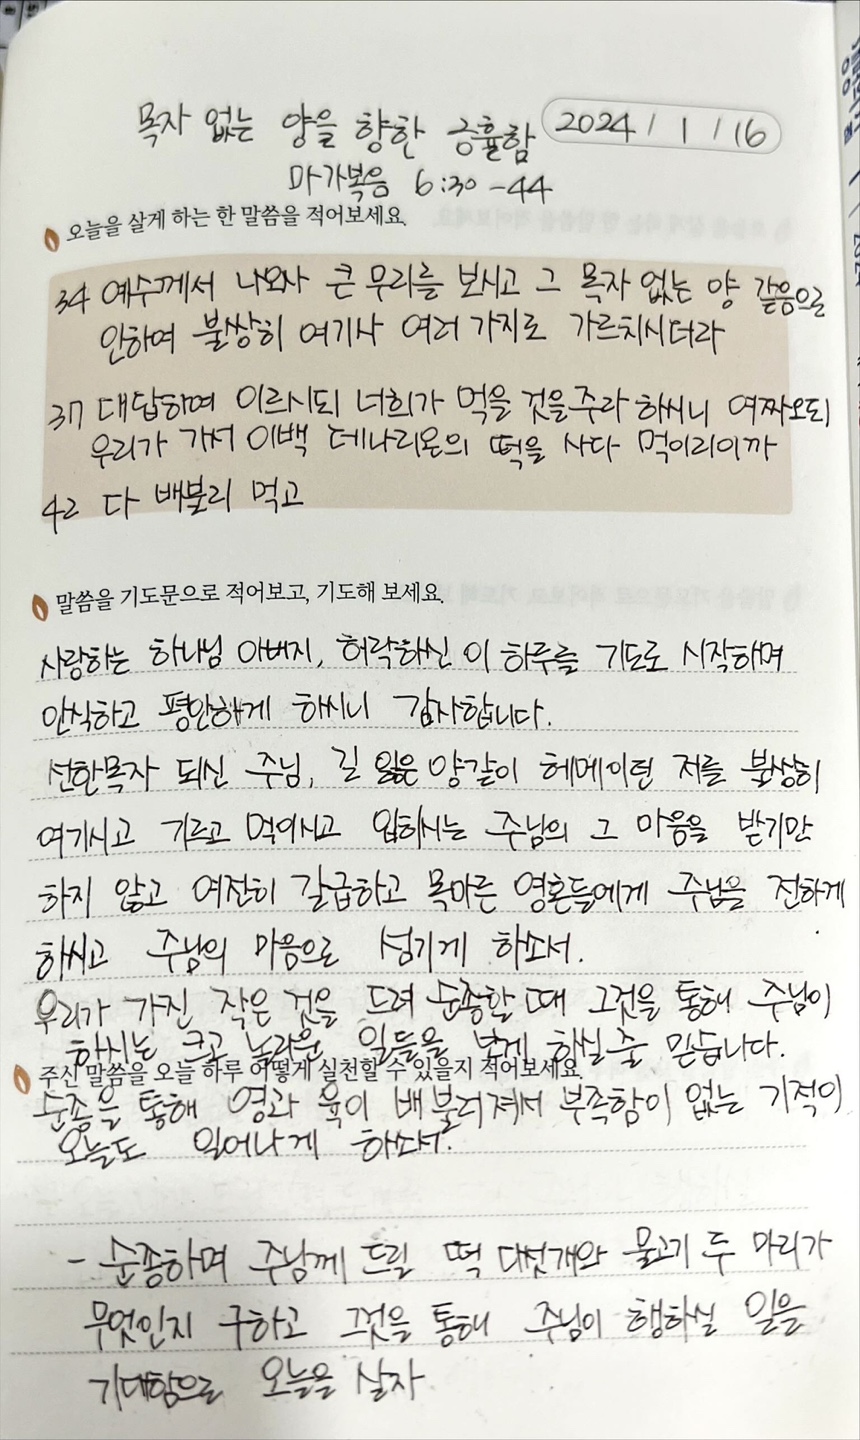 목자 없는 양을 향한 긍휼함 2024/1/16
마가복음 6:30-44
오늘을 살게 하는 한 말씀을 적어보세요.
34 예수께서 나오사 큰 무리를 보시고 그 목자 없는 양 같음으로
인하여 불쌍히 여기사 여러 가지로 가르치시더라
37 대답하여 이르시되 너희가 먹을 것을 주라 하시니 여짜오되
우리가 가서 이백 데나리온의 떡을 사다 먹이리이까
42 다 배불리 먹고
말씀을 기도문으로 적어보고, 기도해 보세요.
사랑하는 하나님 아버지, 허락하신 이 하루를 기도로 시작하며
안식하고 평안하게 하시니 감사합니다.
선한목자 되신 주님, 길 잃은 양같이 헤메이던 저를 불쌍히
여기시고 기르고 먹이시고 입히시는 주님의 그 마음을 받기만
하지 않고 여전히 갈급하고 목마른 영혼들에게 주님을 전하게
하시고 주님의 마음으로 섬기게 하소서.
우리가 가진 작은 것을 드려 순종할 때 그것을 통해 주님이
하시는 크고 놀라운 일들을 보게 하실 줄 믿습니다.
주신 말씀을 오늘 하루 어떻게 실천할 수 있을지 적어보세요.
순종을 통해 영과 육이 배불러져서 부족함이 없는 기적이
오늘도 일어나게 하소서.
- 순종하며 주님께 드릴 떡 다섯개와 물고기 두 마리가
무엇인지 구하고 그것을 통해 주님이 행하실 일을
기대함으로 오늘을 살자